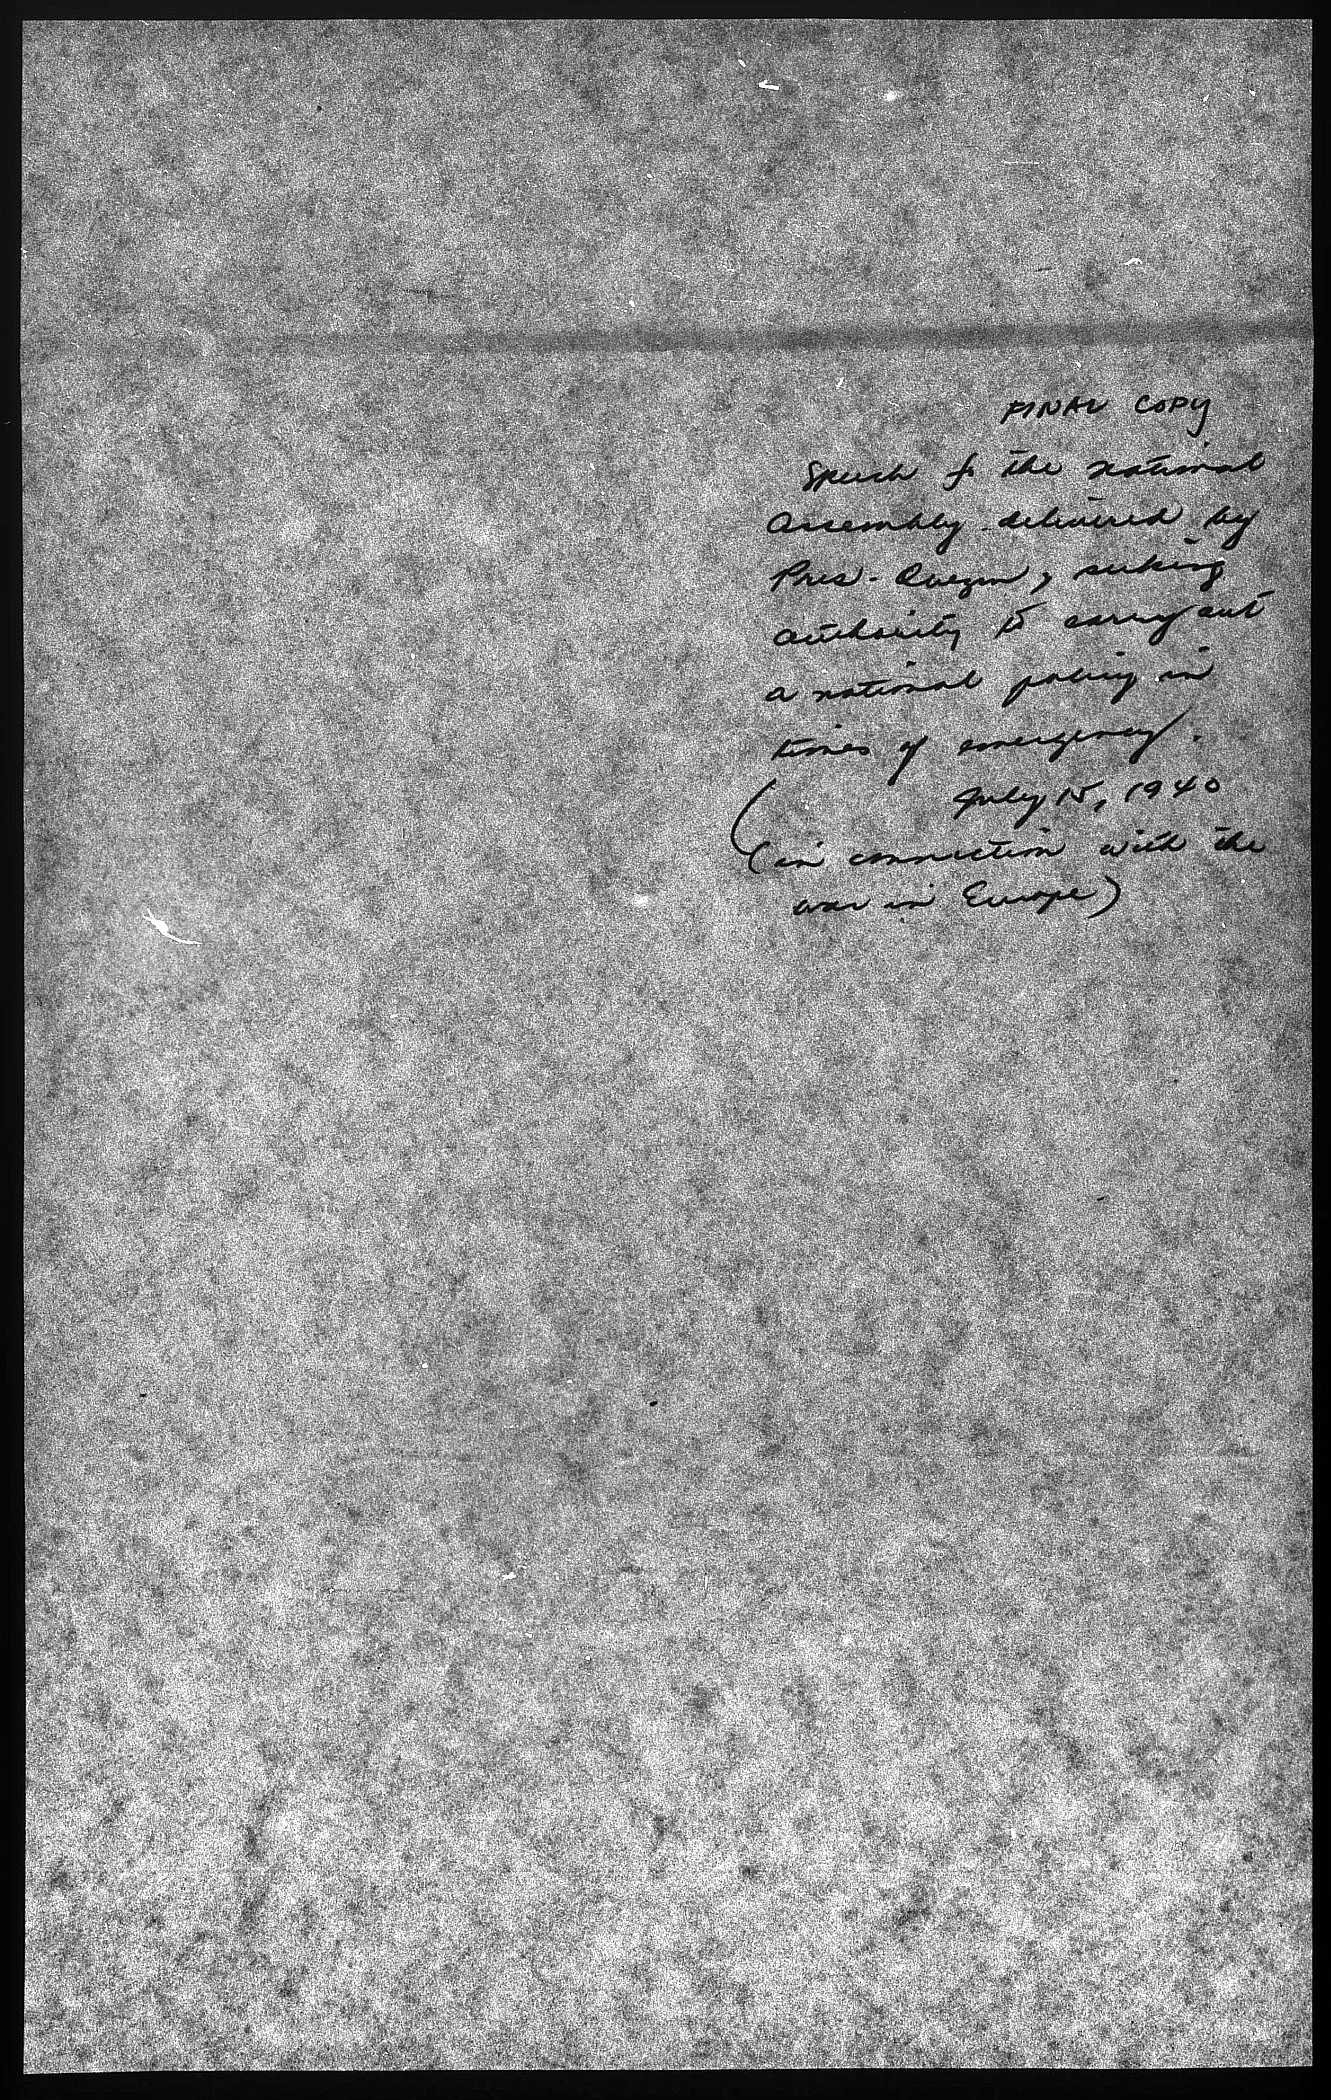 FINAL COPY
Speech to the national
Assembly delivered by
Pres. Quezon, seeking
authority to carry out
a national policy in
times of emergency.
July 15, 1940
(in connection with the
war in Europe)